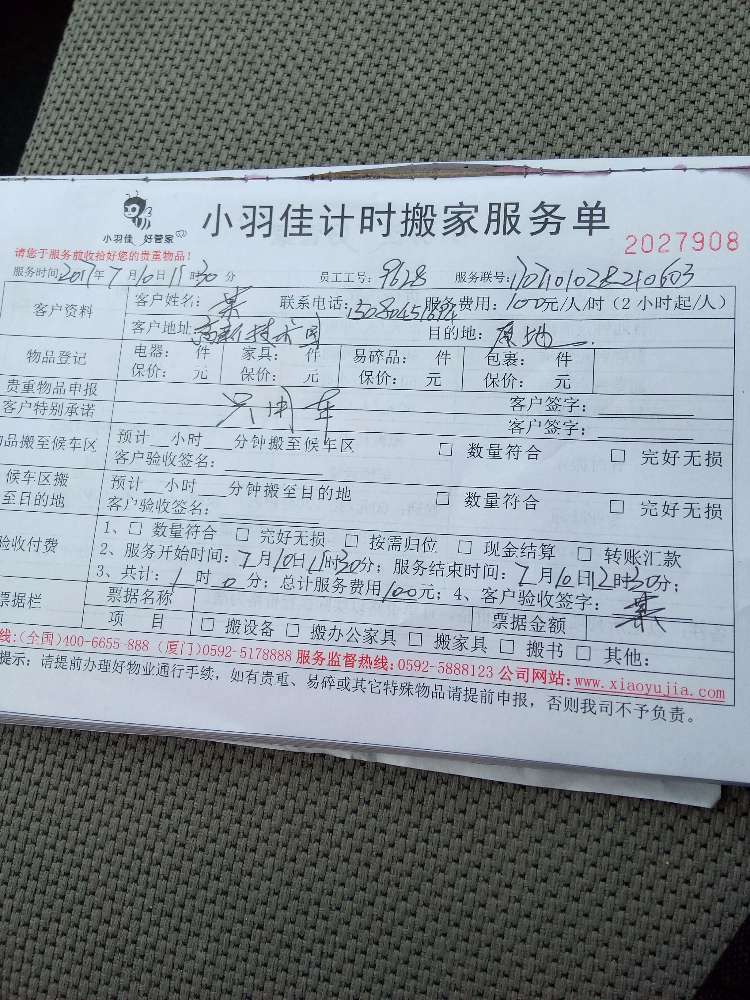 小羽佳 好管家
小羽佳计时搬家服务单
2027908
请您于服务前收拾好您的贵重物品!
服务时间2017年7月10日11时30分 员工工号:9628 服务联号:
客户资料 客户姓名: 联系电话: 服务费用:100元/人/时(2小时起/人)
客户地址:高新技术园 目的地:原地
物品登记 电器: 件 家具: 件 易碎品: 件 包裹: 件
保价: 元 保价: 元 保价: 元 保价: 元
贵重物品申报 客户签字:
客户特别承诺 客户签字:
品搬至候车区 预计 小时 分钟搬至候车区 □ 数量符合 □ 完好无损
客户验收签名:
候车区搬 预计 小时 分钟搬至目的地 □ 数量符合 □ 完好无损
至目的地 客户验收签名:
验收付费 1、□ 数量符合 □ 完好无损 □ 按需归位 □ 现金结算 □ 转账汇款
2、服务开始时间:7月10日11时30分;服务结束时间:7月10日12时30分;
3、共计:1时0分;总计服务费用100元;4、客户验收签字:
票据栏 票据名称 票据金额
项 目 □ 搬设备 □ 搬办公家具 □ 搬家具 □ 搬书 □ 其他:
线:(全国)400-6655-888 (厦门)0592-5178888 服务监督热线:0592-5888123 公司网站:www.xiaoyujia.com
提示:请提前办理好物业通行手续,如有贵重、易碎或其它特殊物品请提前申报,否则我司不予负责。